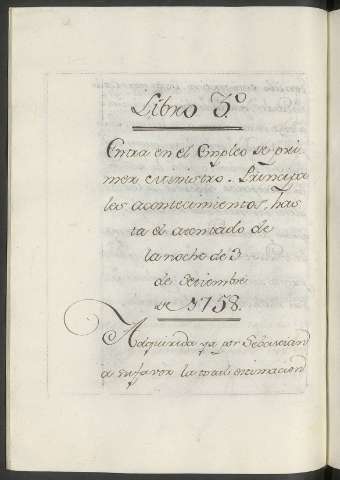 Libro 3.º
Entra en el Empleo de pri-
mer Ministro. Principa
les acontecimientos, has
ta el atentado de
la noche de 3
de Setiembre
de 1758.
Adquirida ya por Sebastian
a su favor la total estimacion